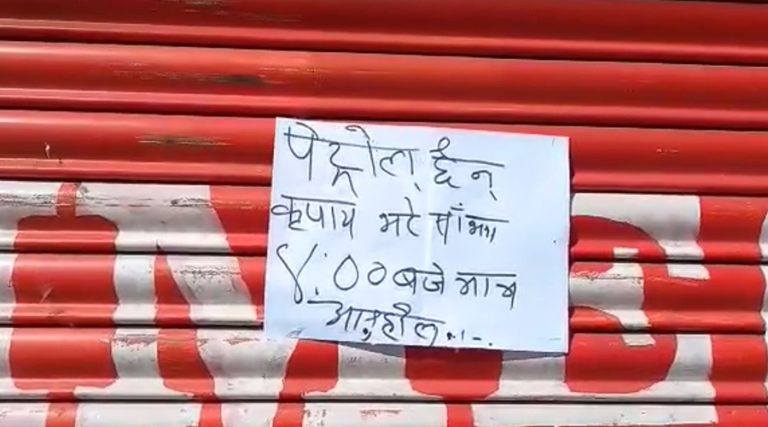 पेट्रोल छैन्
कृपाय भरे साँझ
४:०० बजे मात्र
आउनुहोला...